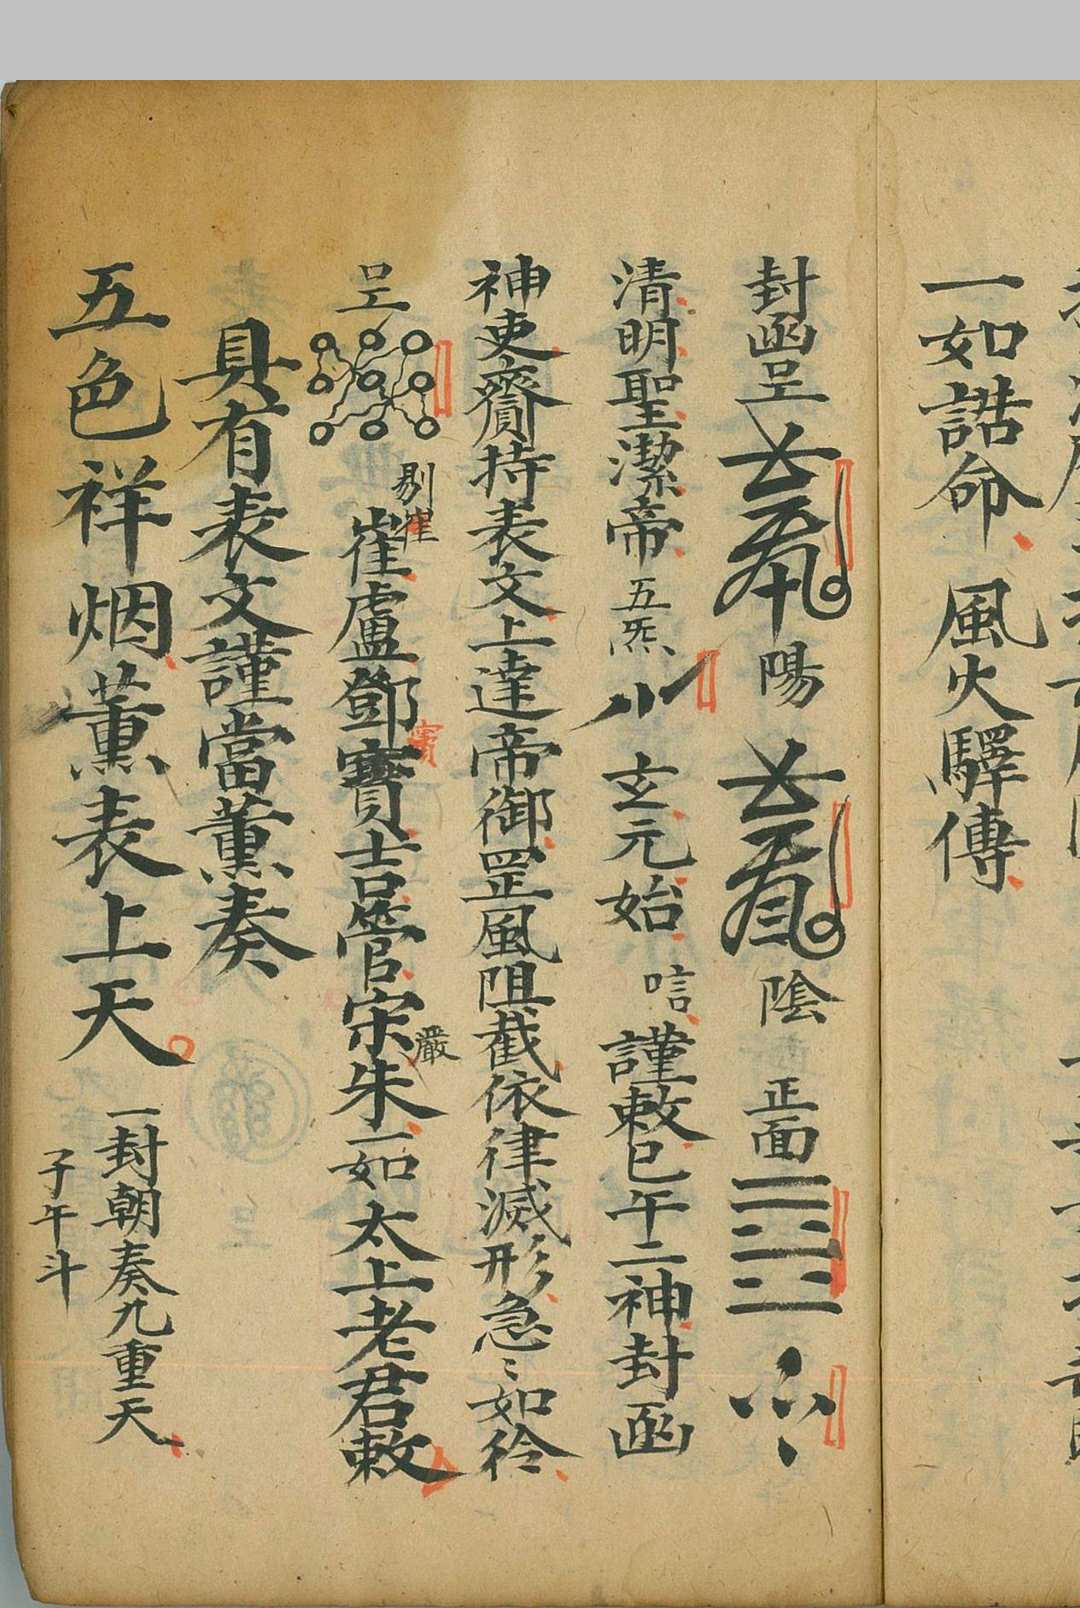 一如誥命風火驛傳
封函 陽 陰 正面
清明聖潔帝 五炁 玄元始 唁 謹敕巳午二神封函
神吏齎持表文上達帝御罡風阻截依律滅形急〻如
剔崔
崔盧鄧寶吉管宋朱一如太上老君敕
賓
嚴
具有表文謹當薰奏
五色祥烟薰表上天
一封朝奏九重天
子午斗